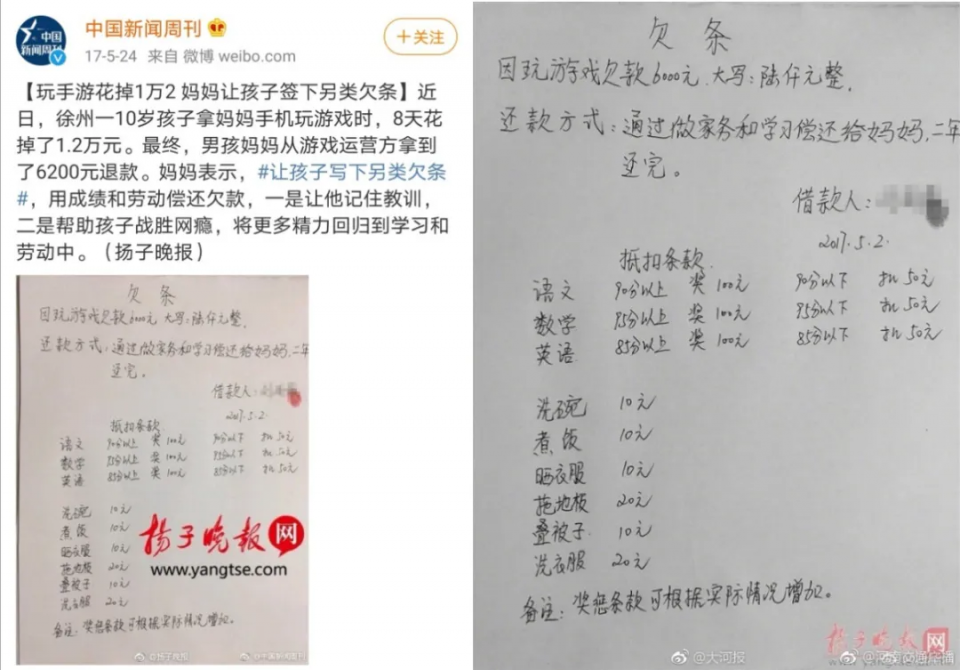 中国新闻周刊
17-5-24 来自 微博 weibo.com
+关注
中国
新闻周刊
【玩手游花掉1万2 妈妈让孩子签下另类欠条】近
日，徐州一10岁孩子拿妈妈手机玩游戏时，8天花
掉了1.2万元。最终，男孩妈妈从游戏运营方拿到
了6200元退款。妈妈表示，#让孩子写下另类欠条
#，用成绩和劳动偿还欠款，一是让他记住教训，
二是帮助孩子战胜网瘾，将更多精力回归到学习和
劳动中。（扬子晚报）
欠条
因玩游戏欠款6000元 大写:陆仟元整,
还款方式:通过做家务和学习偿还给妈妈,二年
还完。
借款人:
2017.5.2.
抵扣条款
语文 90分以上 奖100元 90分以下 扣50元
数学 95分以上 奖100元 95分以下 扣50元
英语 85分以上 奖100元 85分以下 扣50元
洗碗 10元
煮饭 10元
晒衣服 10元
拖地板 20元
叠被子 10元
洗衣服 20元
备注:奖惩条款可根据实际情况增加。
扬子晚报网
www.yangtse.com
@扬子晚报
@中国新闻周刊
欠条
因玩游戏欠款6000元.大写:陆仟元整,
还款方式:通过做家务和学习偿还给妈妈,二年
还完。
借款人:
2017.5.2.
抵扣条款
语文 90分以上 奖100元 90分以下 扣50元
数学 95分以上 奖100元 95分以下 扣50元
英语 85分以上 奖100元 85分以下 扣50元
洗碗 10元
煮饭 10元
晒衣服 10元
拖地板 20元
叠被子 10元
洗衣服 20元
备注:奖惩条款可根据实际情况增加。
扬子晚报网
@大河报